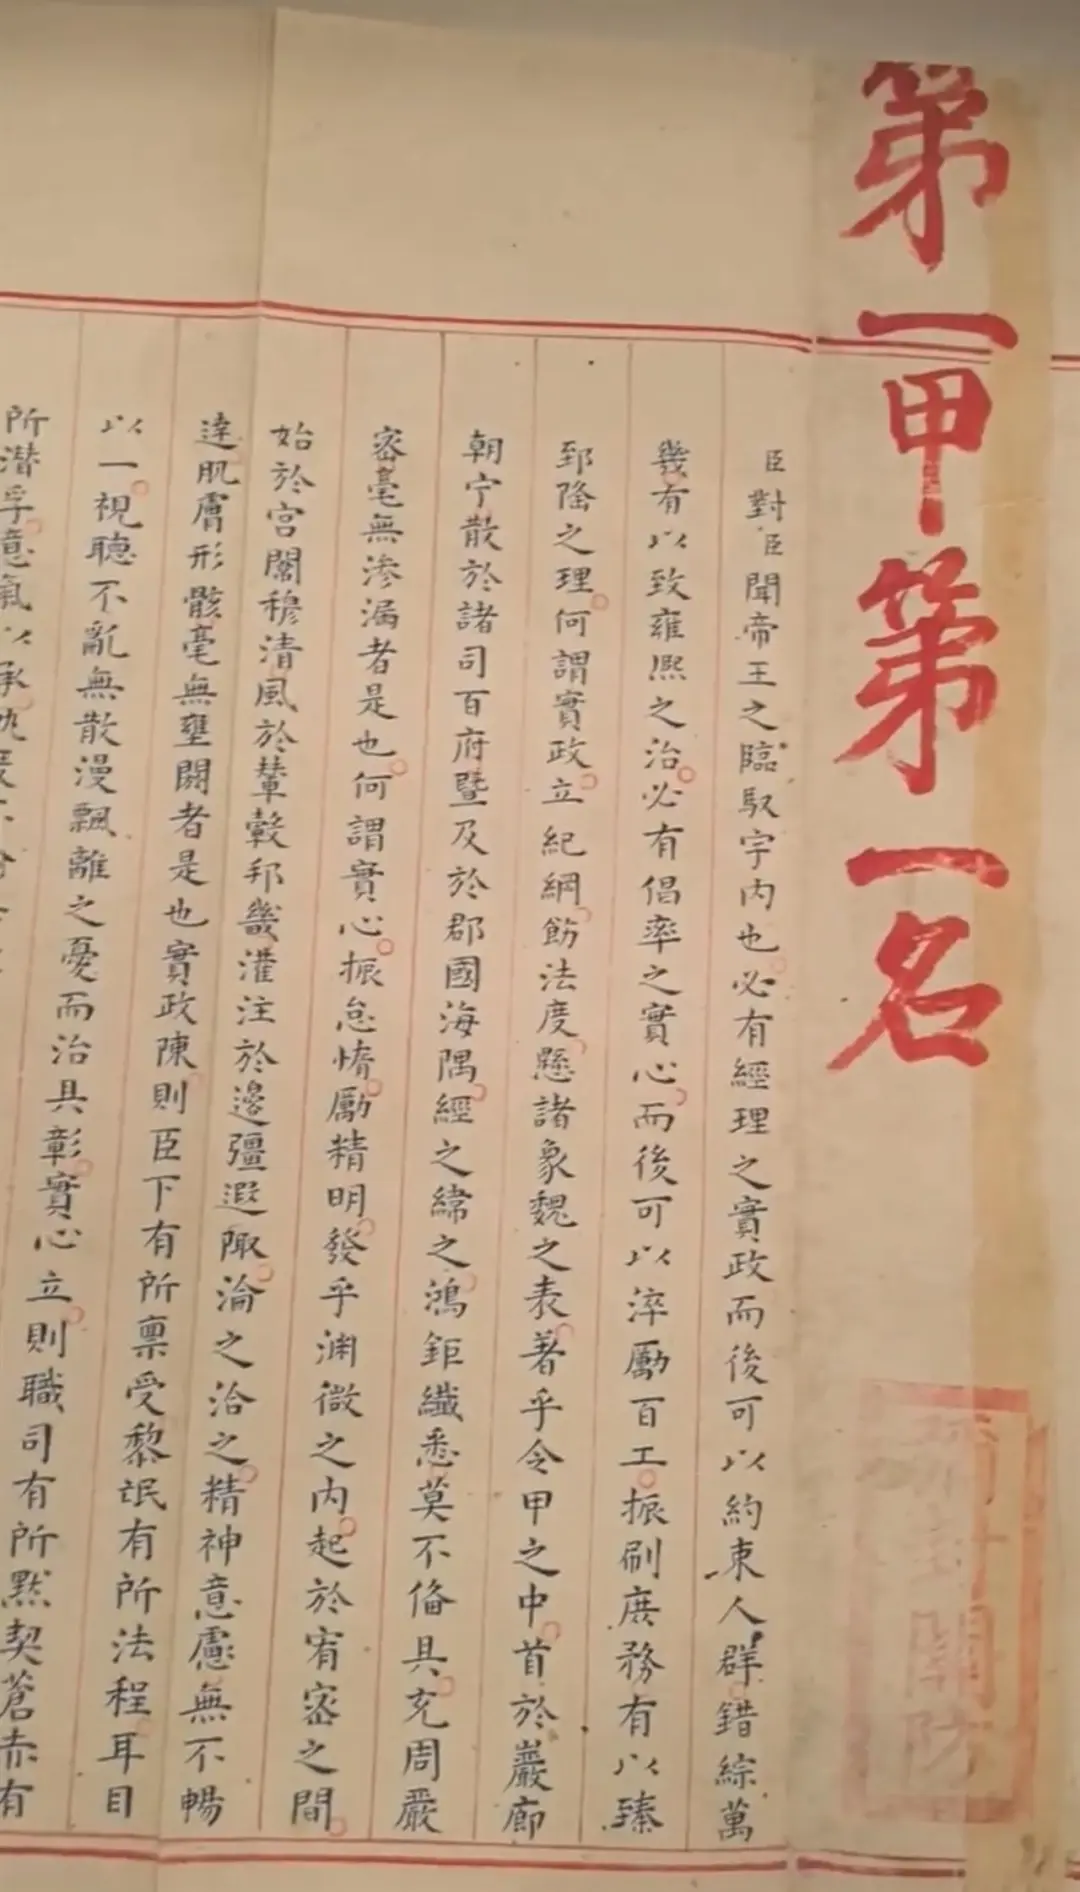 第一甲第一名
臣對臣聞帝王之臨馭宇内也必有經理之實政而後可以約束人群錯綜萬
幾有以致雍熙之治必有倡率之實心而後可以淬勵百工振刷庶務有以臻
郅隆之理何謂實政立紀綱飭法度懸諸象魏之表著乎令甲之中首於巖廊
朝宁散於諸司百府暨及於郡國海隅經之緯之鴻鉅纖悉莫不備具充周嚴
密毫無滲漏者是也何謂實心振怠惰勵精明發乎渊微之内起於宥密之間
始於宮闈穆清風於輦轂邦畿灌注於邊疆遐陬淪之洽之精神意慮無不暢
達肌膚形骸毫無壅閼者是也實政陳則臣下有所禀受黎氓有所法程耳目
以一視聽不亂無散漫飄離之憂而治具彰實心立則職司有所默契蒼赤有
所潛孚意氣以承
關防